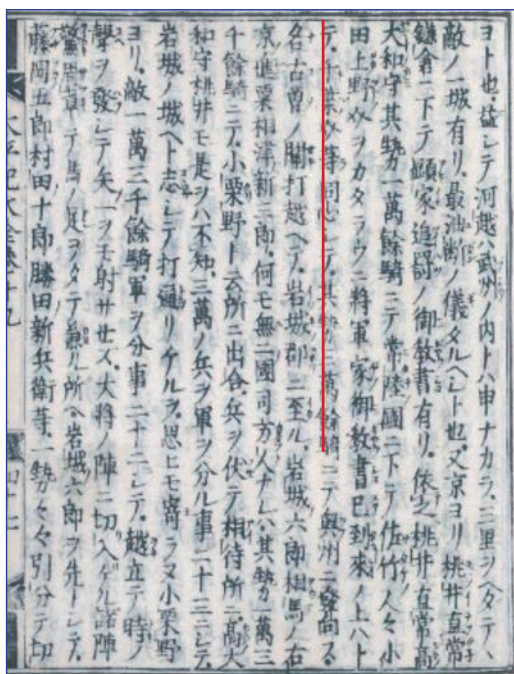 ヨト也益シテ河越ハ武州ノ内トハ申ナカラ三里ヲヘタテヽ
敵ノ一城有リ最油断ノ儀タルヘシト也又京ヨリ桃井直常
鎌倉ニ下テ顕家追罰ノ御教書有リ依之桃井直常高
大和守其勢一萬餘騎ニテ常陸國ニ下テ佐竹人々小
田上野以下ヲカタラウニ將軍家御教書已到來ノ上ハト
同心シテ其勢二萬餘騎ニテ奥州ニ發向ス
名古曽ノ關打越ヘテ岩城郡ニ至ル岩城六郎相馬ノ右
京進粟相津新三郎何モ無二國司方ノ人ナレハ其勢一萬三
千餘騎ニテ小栗野ト云所ニ出合兵ヲ伏テ相待所ニ高大
和守桃井モ是ヲハ不知三萬ノ兵ヲ軍ヲ分ル事二十三ニシテ
岩城ノ城ヘト志シテ打通リケルヲ思ヒモ寄ラヌ小栗野
ヨリ敵一萬三千餘騎軍ヲ分事二十ニシテ越立テ時ノ
聲ヲ發シテ矢一ヲモ射サセズ大將ノ陣ニ切入ケル諸陣
驚周章テ馬ノ足ヲタテ兼ル所ヘ岩城六郎ヲ先トシテ
藤岡五郎村田十郎勝田新兵衛等一勢々々引分テ切